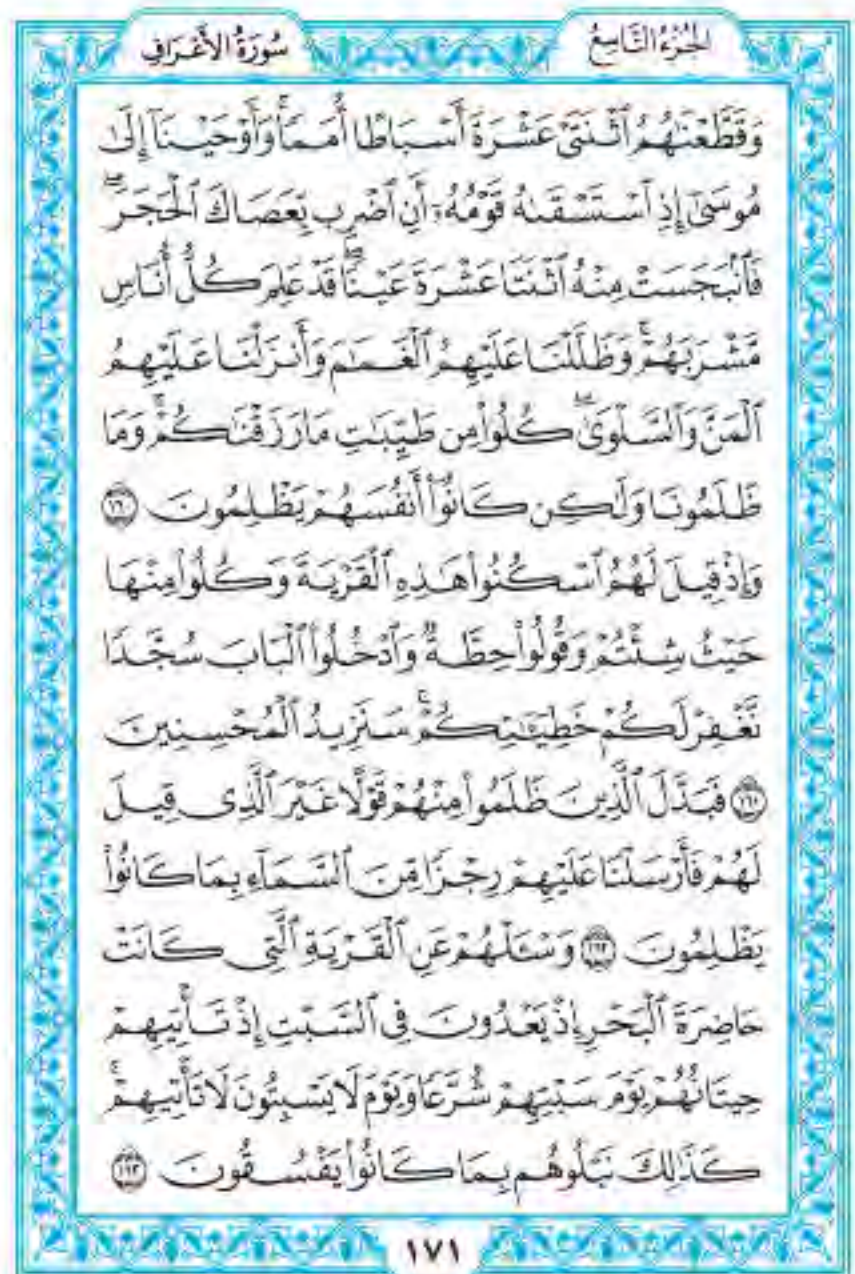 الجُزْءُ التَّاسِعُ
سُورَةُ الأَعْرَافِ
وَقَطَّعْنَٰهُمُ ٱثْنَتَىْ عَشْرَةَ أَسْبَاطًا أُمَمًاۚ وَأَوْحَيْنَآ إِلَىٰ
مُوسَىٰٓ إِذِ ٱسْتَسْقَىٰهُ قَوْمُهُۥٓ أَنِ ٱضْرِب بِّعَصَاكَ ٱلْحَجَرَۖ
فَٱنۢبَجَسَتْ مِنْهُ ٱثْنَتَا عَشْرَةَ عَيْنًاۖ قَدْ عَلِمَ كُلُّ أُنَاسٍ
مَّشْرَبَهُمْۚ وَظَلَّلْنَا عَلَيْهِمُ ٱلْغَمَٰمَ وَأَنزَلْنَا عَلَيْهِمُ
ٱلْمَنَّ وَٱلسَّلْوَىٰۖ كُلُوا۟ مِن طَيِّبَٰتِ مَا رَزَقْنَٰكُمْۚ وَمَا
ظَلَمُونَا وَلَٰكِن كَانُوٓا۟ أَنفُسَهُمْ يَظْلِمُونَ ١٦٠
وَإِذْ قِيلَ لَهُمُ ٱسْكُنُوا۟ هَٰذِهِ ٱلْقَرْيَةَ وَكُلُوا۟ مِنْهَا
حَيْثُ شِئْتُمْ وَقُولُوا۟ حِطَّةٌ وَٱدْخُلُوا۟ ٱلْبَابَ سُجَّدًا
نَّغْفِرْ لَكُمْ خَطِيٓـَٰٔتِكُمْۚ سَنَزِيدُ ٱلْمُحْسِنِينَ
١٦١ فَبَدَّلَ ٱلَّذِينَ ظَلَمُوا۟ مِنْهُمْ قَوْلًا غَيْرَ ٱلَّذِى قِيلَ
لَهُمْ فَأَرْسَلْنَا عَلَيْهِمْ رِجْزًا مِّنَ ٱلسَّمَآءِ بِمَا كَانُوا۟
يَظْلِمُونَ ١٦٢ وَسْـَٔلْهُمْ عَنِ ٱلْقَرْيَةِ ٱلَّتِى كَانَتْ
حَاضِرَةَ ٱلْبَحْرِ إِذْ يَعْدُونَ فِى ٱلسَّبْتِ إِذْ تَأْتِيهِمْ
حِيتَانُهُمْ يَوْمَ سَبْتِهِمْ شُرَّعًا وَيَوْمَ لَا يَسْبِتُونَ لَا تَأْتِيهِمْۚ
كَذَٰلِكَ نَبْلُوهُم بِمَا كَانُوا۟ يَفْسُقُونَ ١٦٣
١٧١